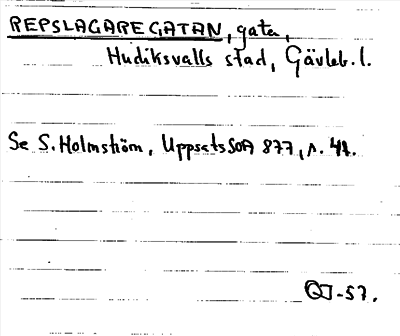 REPSLAGAREGATAN, gata,
Hudiksvalls stad, Gävleb. l.
Se S. Holmström, Uppsats SOA 877, s. 41.
QJ-57.